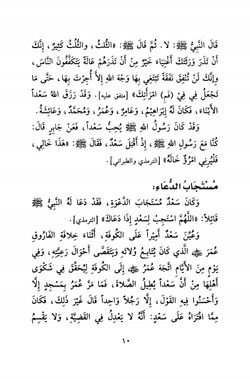 قَالَ النَّبِيُّ ﷺ: لا. ثُمَّ قَالَ ﷺ: «الثُّلُثُ، وَالثُّلُثُ كَثِيرٌ، إِنَّكَ
أَنْ تَذَرَ وَرَثَتَكَ أَغْنِيَاءَ خَيْرٌ مِنْ أَنْ تَذَرَهُمْ عَالَةً يَتَكَفَّفُونَ النَّاسَ،
وَإِنَّكَ لَنْ تُنْفِقَ نَفَقَةً تَبْتَغِي بِهَا وَجْهَ اللهِ إِلَّا أُجِرْتَ بِهَا، حَتَّى مَا
تَجْعَلُ فِي فِيِّ (فَمِ) امْرَأَتِكَ» [متفق عليه]. وَقَدْ رَزَقَ اللهُ سَعْداً
الأَبْنَاءَ، فَكَانَ لَهُ إِبْرَاهِيمُ، وَعَامِرٌ، وَعُمَرُ، وَمُحَمَّدٌ، وَعَائِشَةُ.
وَقَدْ كَانَ رَسُولُ اللهِ ﷺ يُحِبُّ سَعْداً، فَعَنْ جَابِرٍ قَالَ:
كُنَّا مَعَ رَسُولِ اللهِ ﷺ، إِذْ أَقْبَلَ سَعْدٌ، فَقَالَ ﷺ: «هَذَا خَالِي،
فَلْيُرِنِي امْرُؤٌ خَالَهُ» [الترمذي والطبراني].
مُسْتَجَابُ الدُّعَاءِ:
وَكَانَ سَعْدٌ مُسْتَجَابَ الدَّعْوَةِ، فَقَدْ دَعَا لَهُ النَّبِيُّ ﷺ
قَائِلاً: «اللَّهُمَّ اسْتَجِبْ لِسَعْدٍ إِذَا دَعَاكَ» [الترمذي].
وَعُيِّنَ سَعْدٌ أَمِيراً عَلَى الكُوفَةِ، أَثْنَاءَ خِلافَةِ الفَارُوقِ
عُمَرَ الَّذِي كَانَ يُتَابِعُ وُلَاتَهُ وَيَتَقَصَّى أَحْوَالَ رَعِيَّتِهِ، وَفِي
يَوْمٍ مِنَ الأَيَّامِ اتَّجَهَ عُمَرُ إِلَى الكُوفَةِ لِيُحَقِّقَ فِي شَكْوَى
أَهْلِهَا مِنْ أَنَّ سَعْداً يُطِيلُ الصَّلاةَ، فَمَا مَرَّ عُمَرُ بِمَسْجِدٍ إِلَّا
وَأَحْسَنُوا فِيهِ القَوْلَ، إِلَّا رَجُلاً وَاحِداً قَالَ غَيْرَ ذَلِكَ، فَكَانَ
مِمَّا افْتَرَاهُ عَلَى سَعْدٍ: أَنَّهُ لا يَعْدِلُ فِي القَضِيَّةِ، وَلا يَقْسِمُ
١٠